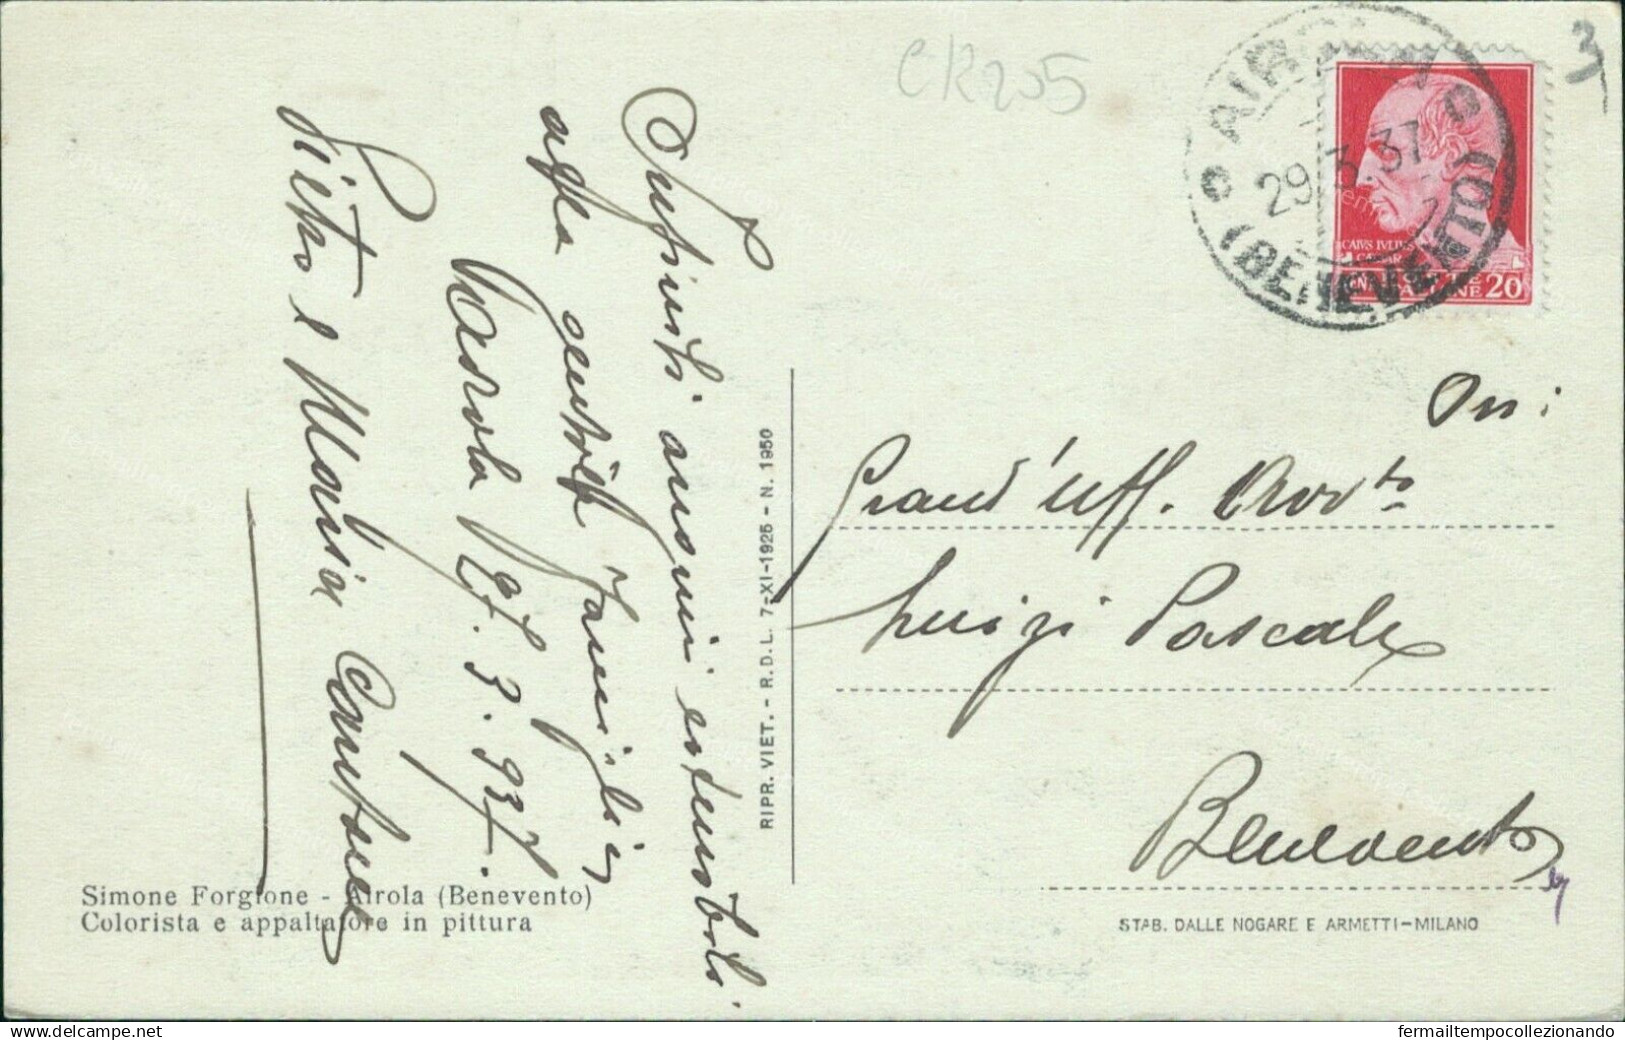 CR205
3
AIROLA
(BENEVENTO)
29.3.37
CAIVS IVLIVS
CAESAR
20
Infiniti auguri estensibili
alla gentile famiglia
Airola 27.3.937.
Pietro e Maria
On:
Grand'Uff. Avv.to
Luigi Pascale
Benevento
RIPR. VIET. - R.D.L. 7-XI-1925 - N. 1950
Simone Forgione - Airola (Benevento)
Colorista e appaltatore in pittura
STAB. DALLE NOGARE E ARMETTI-MILANO
https://www.delcampe.net
fermailtempocollezionando